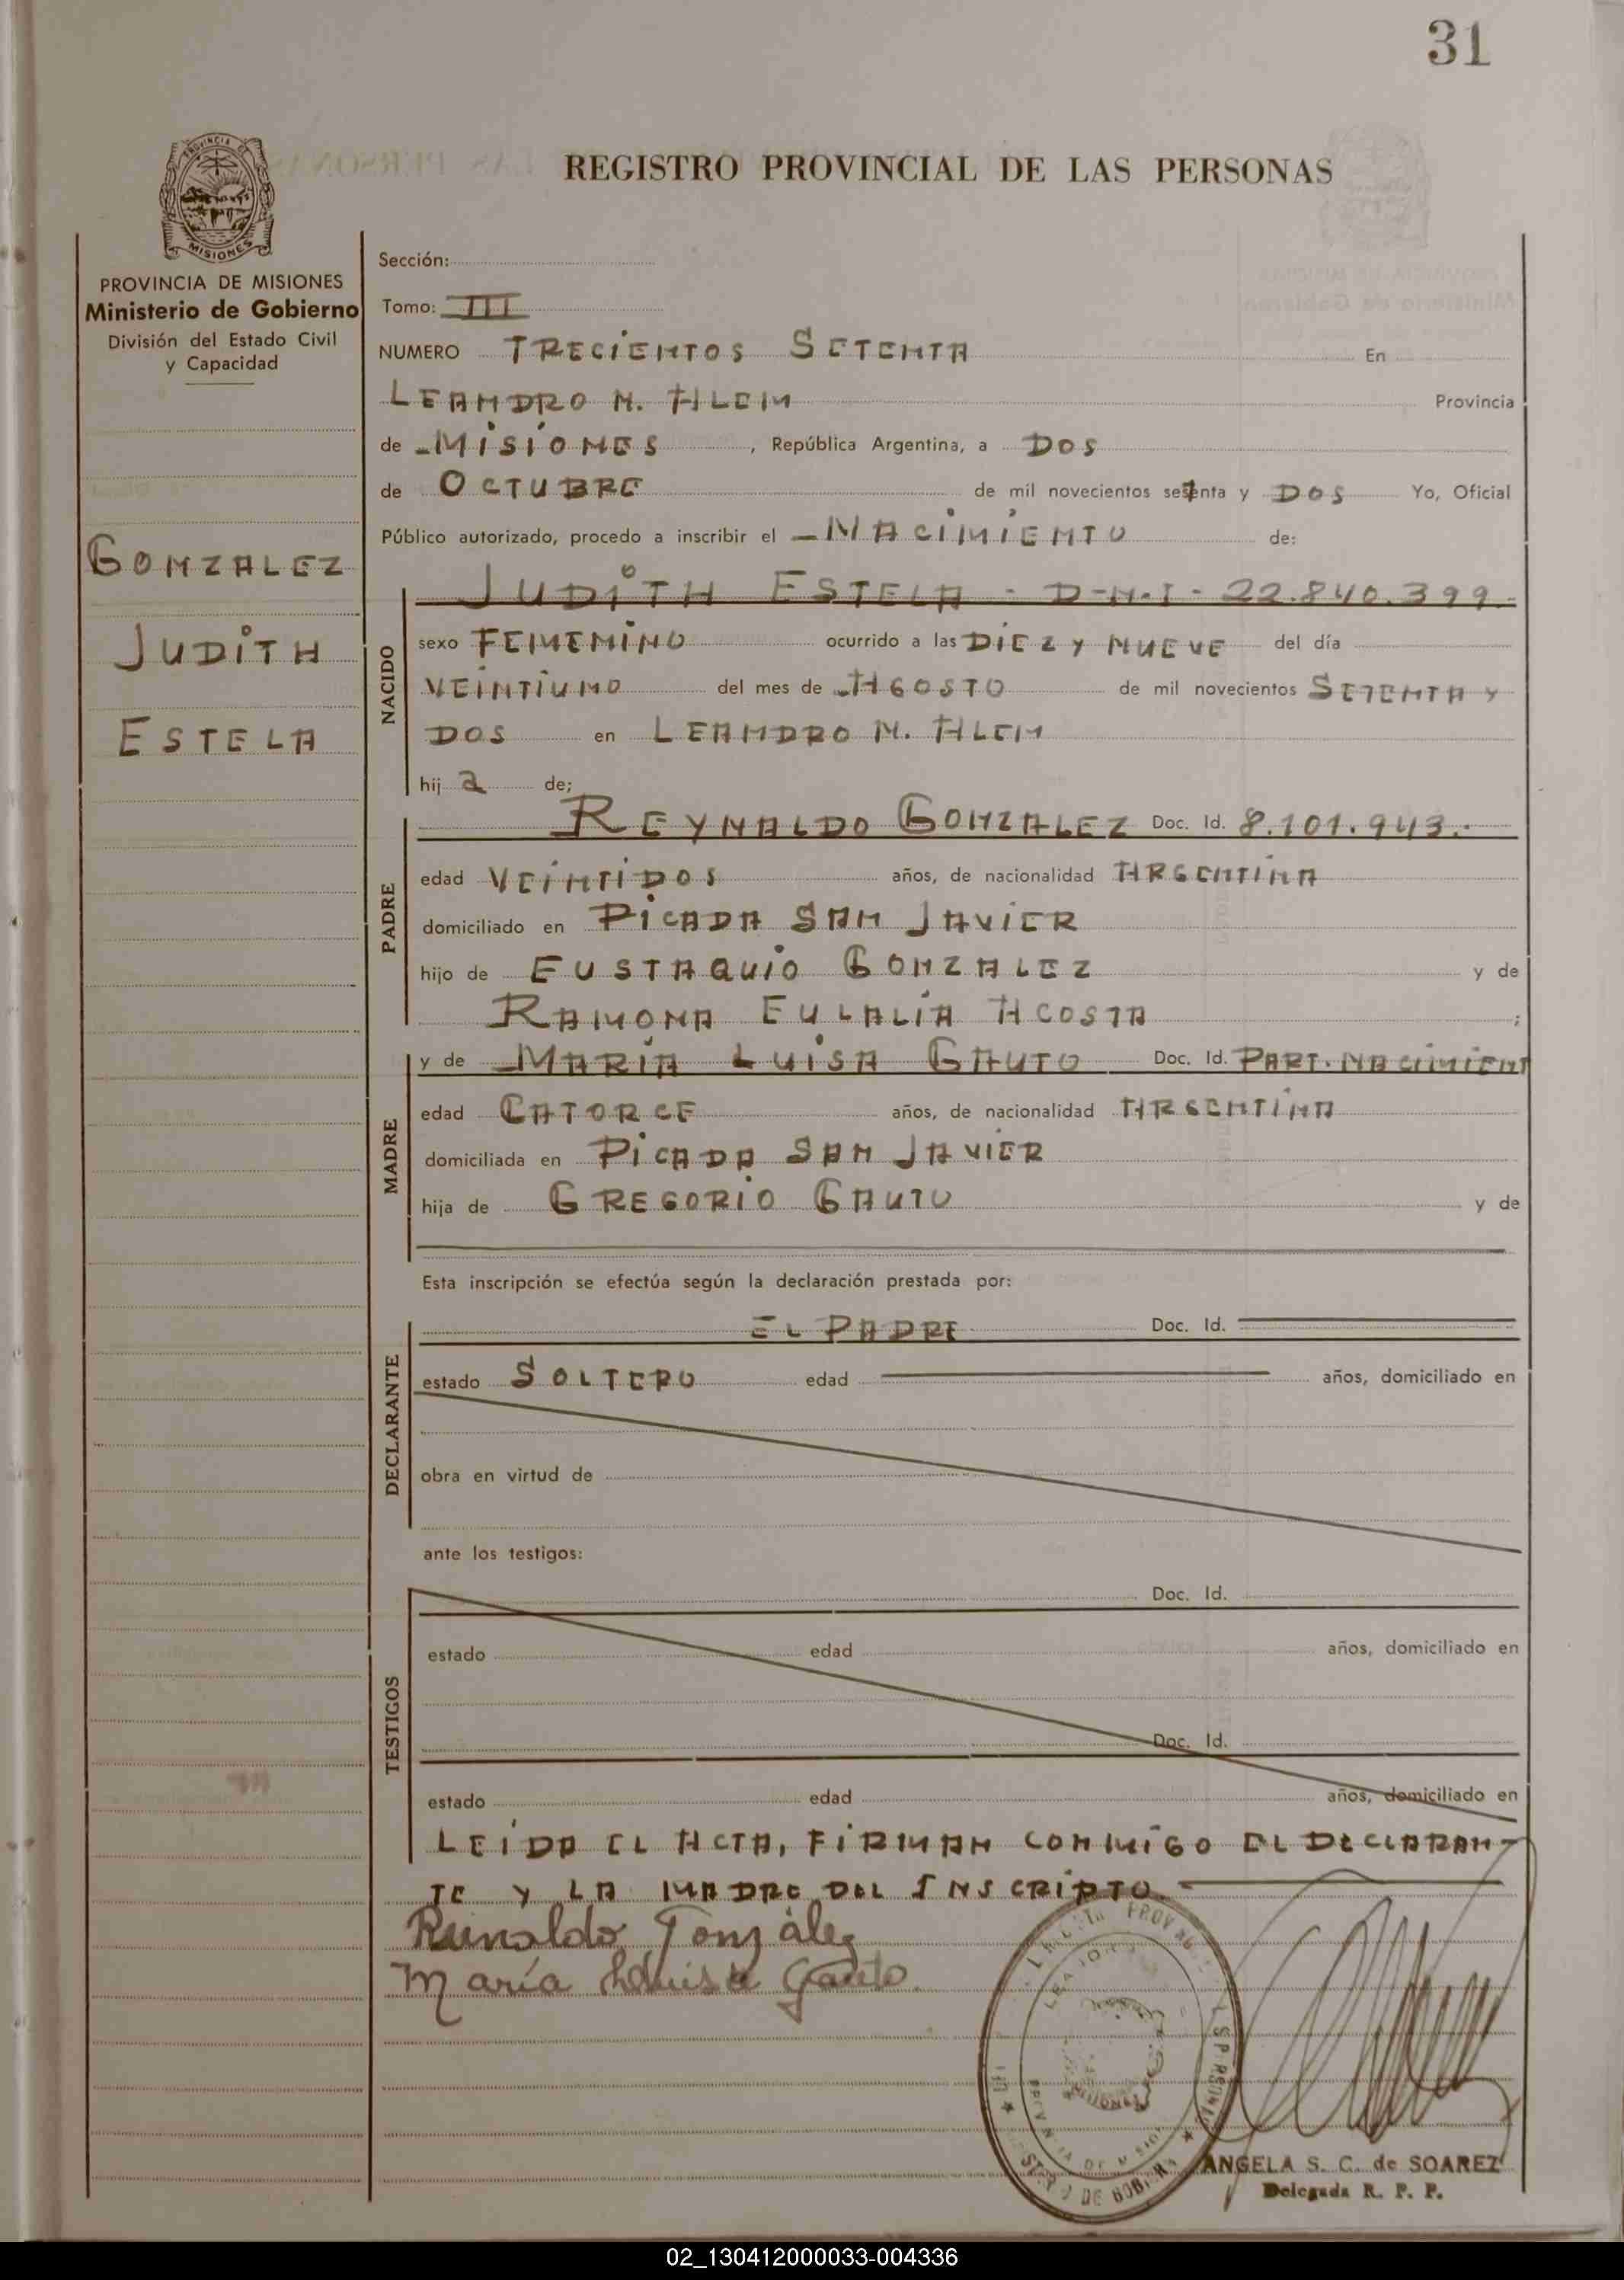 31
REGISTRO PROVINCIAL DE LAS PERSONAS
PROVINCIA DE
MISIONES
PROVINCIA DE MISIONES
Ministerio de Gobierno
División del Estado Civil
y Capacidad
GONZALEZ
JUDITH
ESTELA
Sección:
Tomo: III
NUMERO TRECIENTOS SETENTA En
LEANDRO N. ALEM Provincia
de MISIONES, República Argentina, a DOS
de OCTUBRE de mil novecientos setenta y DOS Yo, Oficial
Público autorizado, procedo a inscribir el NACIMIENTO de:
NACIDO
JUDITH ESTELA - D-N-I- 22.840.399-
sexo FEMENINO ocurrido a las DIEZ Y NUEVE del día
VEINTIUNO del mes de AGOSTO de mil novecientos SETENTA Y
DOS en LEANDRO N. ALEM
hij a de;
PADRE
REYNALDO GONZALEZ Doc. Id. 8.101.943.-
edad VEINTIDOS años, de nacionalidad ARGENTINA
domiciliado en PICADA SAN JAVIER
hijo de EUSTAQUIO GONZALEZ y de
RAMONA EULALIA ACOSTA ;
MADRE
y de MARIA LUISA GAUTO Doc. Id. PART. NACIMIENT
edad CATORCE años, de nacionalidad ARGENTINA
domiciliada en PICADA SAN JAVIER
hija de GREGORIO GAUTO y de
Esta inscripción se efectúa según la declaración prestada por:
DECLARANTE
EL PADRE Doc. Id.
estado SOLTERO edad años, domiciliado en
obra en virtud de
ante los testigos:
TESTIGOS
Doc. Id.
estado edad años, domiciliado en
Doc. Id.
estado edad años, domiciliado en
LEIDA EL ACTA, FIRMAN CONMIGO EL DECLARAN-
TE Y LA MADRE DEL INSCRIPTO.
Reinaldo González
María Luisa Gauto.
ANGELA S. C. de SOAREZ
Delegada R. P. P.
02_130412000033-004336